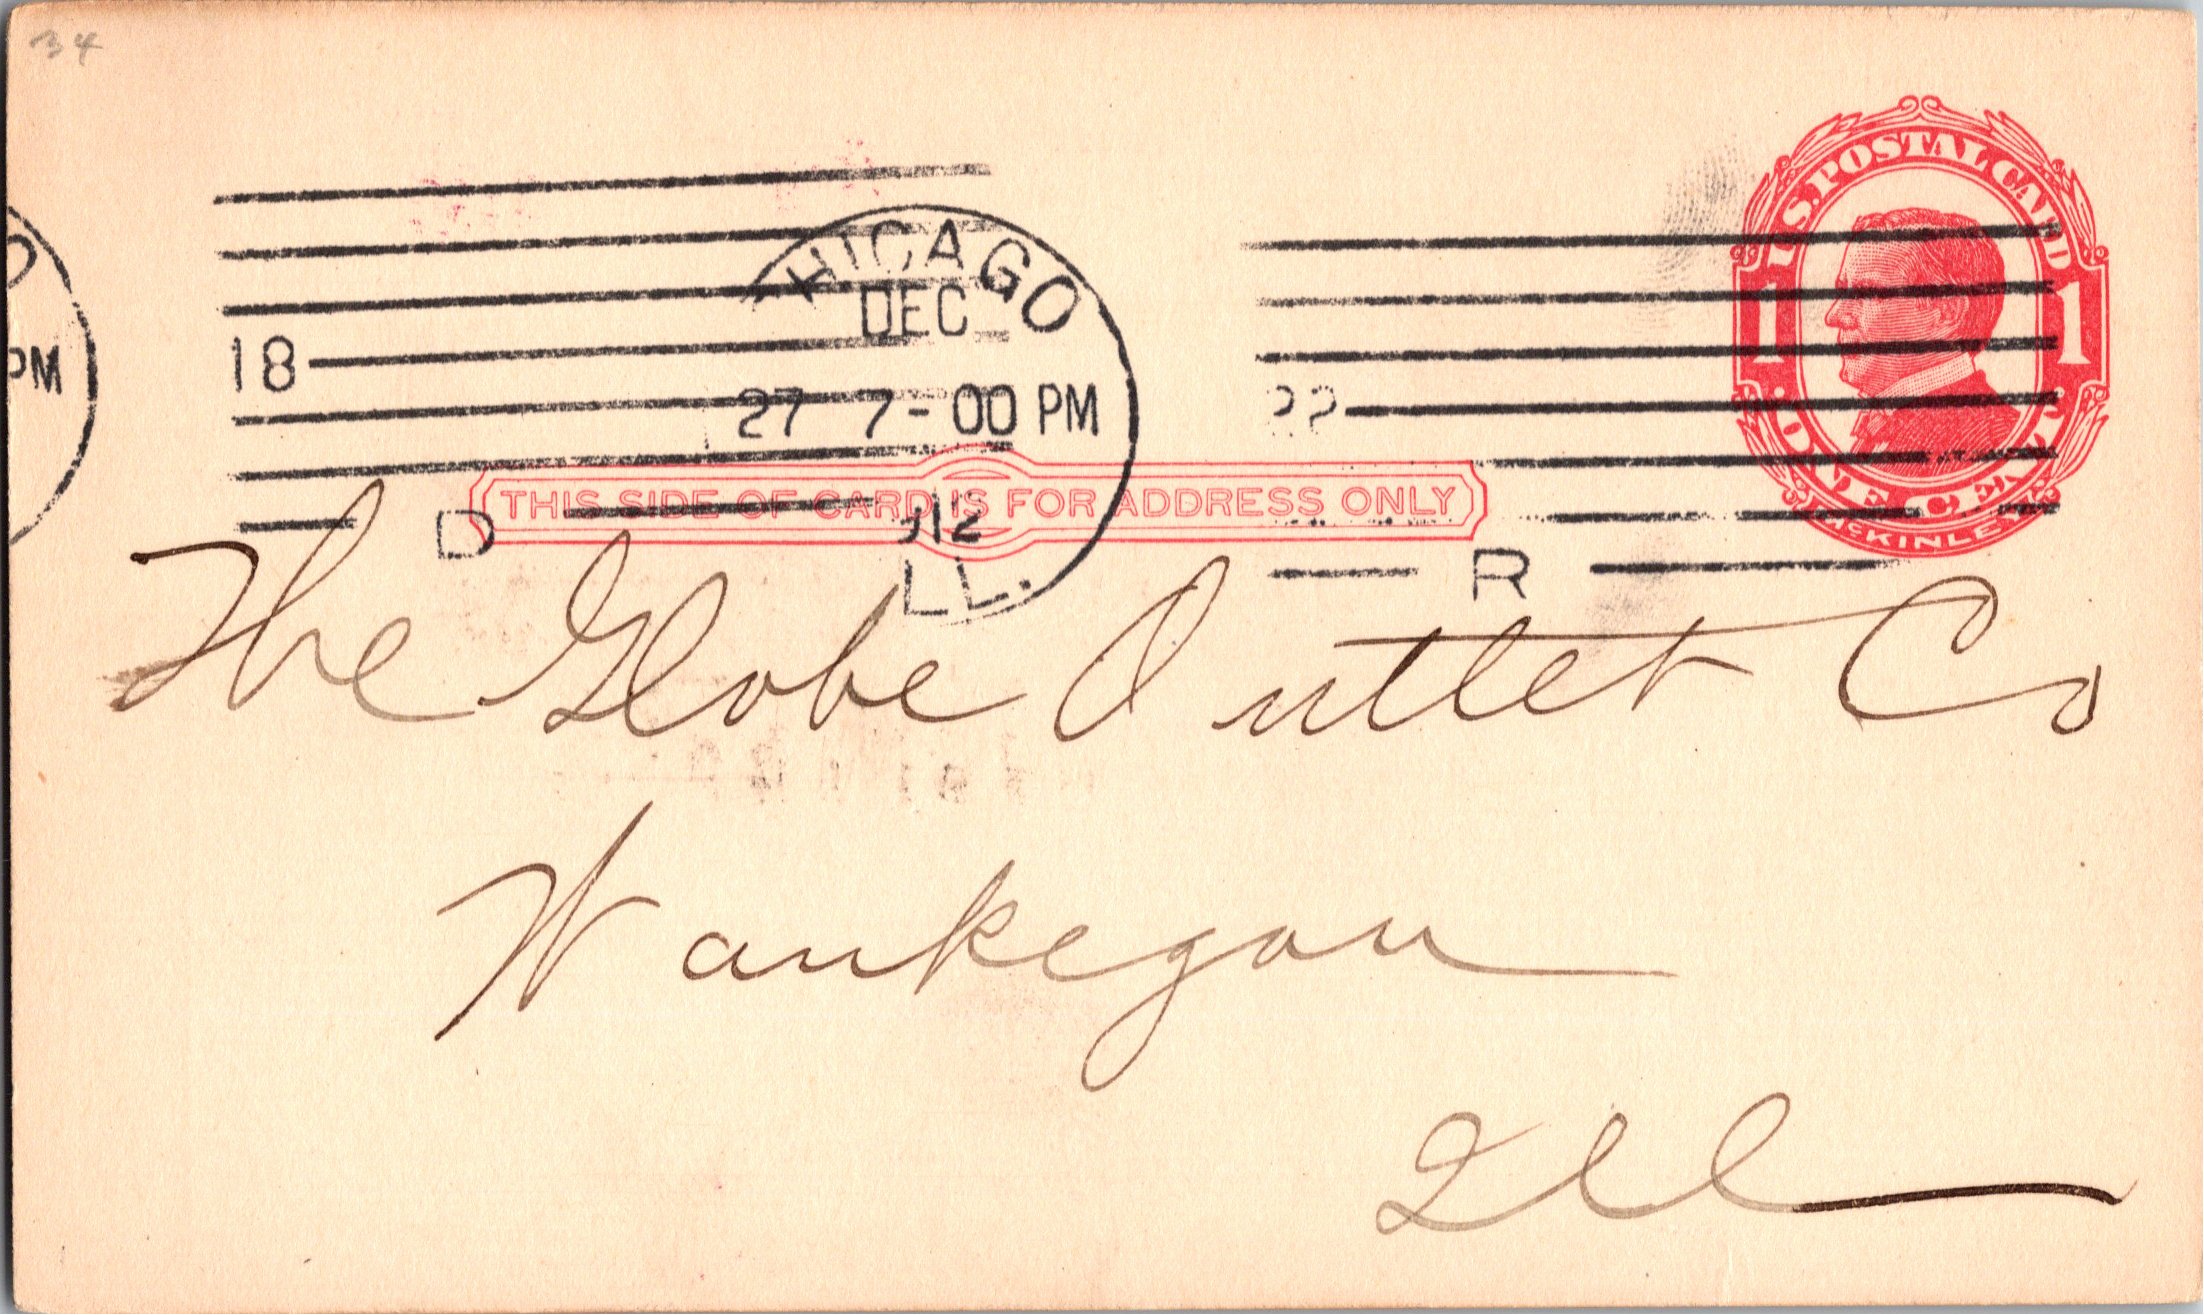 34
U.S. POSTAL CARD
1 1
ONE CENT
McKINLEY
CHICAGO
DEC
27 7-00 PM
PM
18
22
THIS SIDE OF CARD IS FOR ADDRESS ONLY
D
R
ILL.
The Globe Outlet Co
Waukegan
Ill